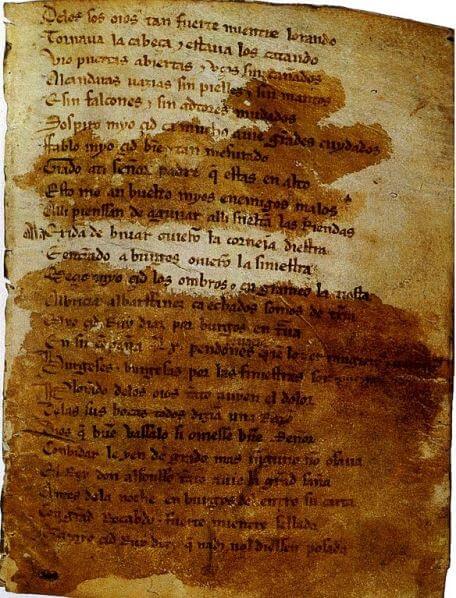 Delos sos oios tan fuerte mientre lorando
Tornaua la cabeça & estaua los catando
Vio puertas abiertas & vços sin cañados
Alcandaras uazias sin pielles & sin mantos
E sin falcones & sin adtores mudados
Sospiro myo çid ca mucho auie grãdes cuydados
Fablo myo çid bien & tan mesurado
Grado ati señor padre q̃ estas en alto
Esto me an buelto myos enemigos malos
Alli pienssan de aguiiar alli sueltã las Riendas
Ala Exida de biuar ouierõ la corneia diestra
E entrãdo a burgos ouierõ la siniestra
Meçio myo çid los ombros & engrameo la tiesta
Albricia albarffanez ca echados somos de trr̃a
Myo çid Ruy diaz por burgos entraua
En su conpaña Lx pendones leuaua
Burgeses & burgesas por las finiestras son
Plorãdo delos oios tãto auyen el dolor
Delas sus bocas todos dizian una Razõ
Dios q̃ buẽ vassalo si ouiesse buẽ Señor
Conbidar le yen de grado mas ninguno no osaua
El Rey don alfonsso tãto auie la grãd saña
Antes dela noche en burgos del entro su carta
Con grãd Recabdo & fuerte mientre sellada
Que a myo çid Ruy diaz q̃ nadi nol diessen posada